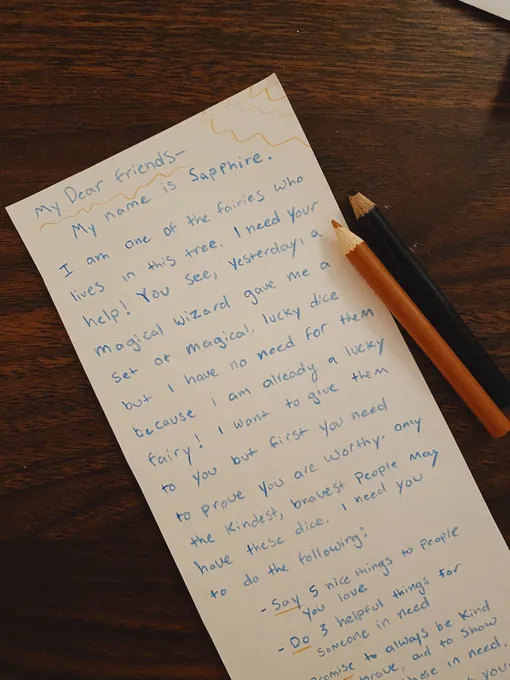 My Dear friends-
My name is Sapphire.
I am one of the fairies who
lives in this tree. I need your
help! You see, yesterday, a
magical wizard gave me a
set of magical, lucky dice
but I have no need for them
because I am already a lucky
fairy! I want to give them
to you but first you need
to prove you are worthy. Only
the kindest, bravest people may
have these dice. I need you
to do the following:
- Say 5 nice things to people
you love
- Do 3 helpful things for
someone in need
Promise to always be kind
brave, aid to show
those in need.